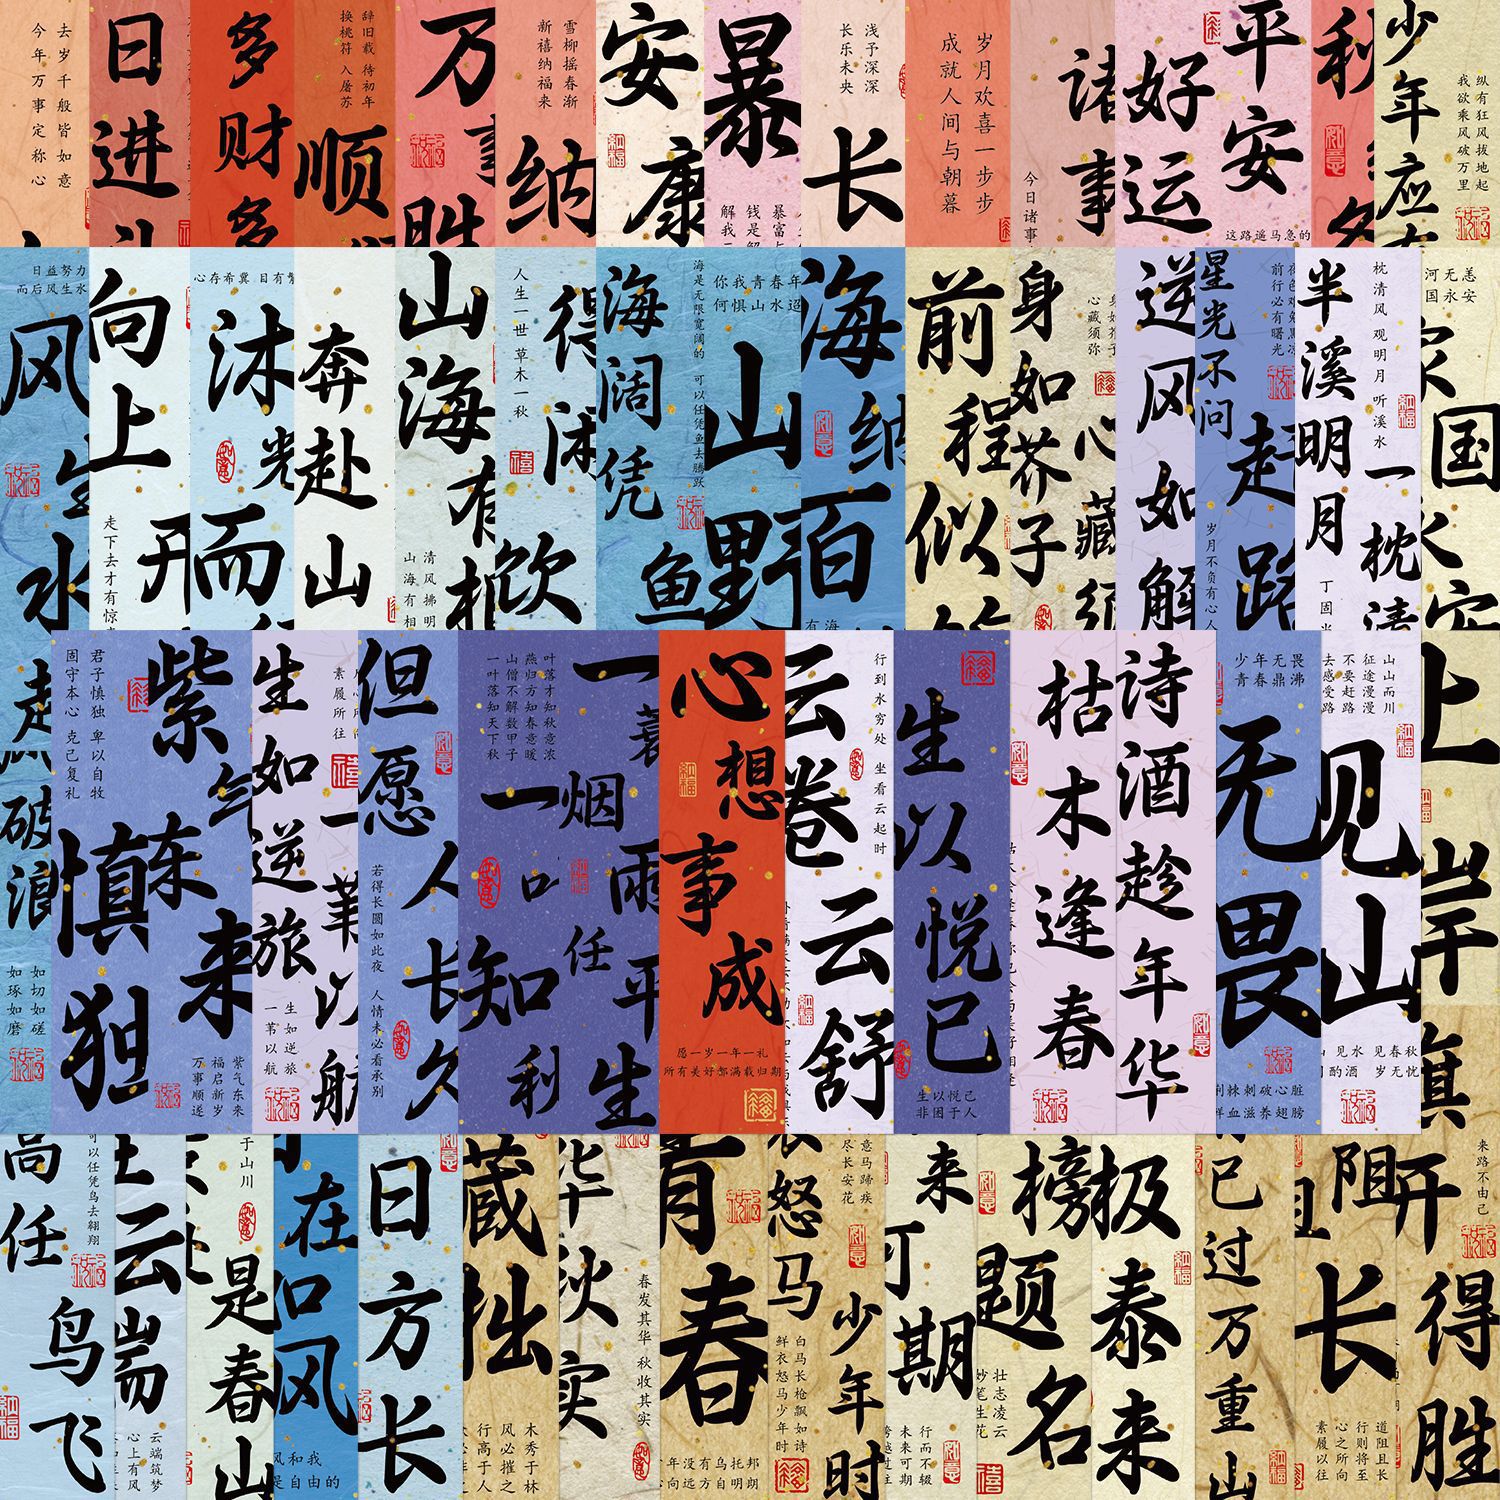 去岁千般皆如意
今年万事定称心
日进斗
多财
多
辞旧载 待初年
换桃符 入屠苏
顺
万
事
胜
雪柳摇春渐
新禧纳福来
纳
安康
暴
暴富
钱是解
解我
浅予深深
长乐未央
长
岁月欢喜一步步
成就人间与朝暮
诸事
今日诸事
好运
平安
这路遥马急的
秋
名
少年应有
纵有狂风拔地起
我欲乘风破万里
日益努力
而后风生水
风生水
向上
走下去才有惊
开
心存希冀 目有繁
沐光而行
奔赴山
山海有相
清风拂明
山海有相
人生一世 草木一秋
得沐欣
海阔凭鱼
海是无限宽阔的 可以任凭鱼去腾跃
你我青春年
何惧青山水迢
山野
海纳百
有海
前程似
身如芥子
心藏须弥
心藏须
逆风如解
星光不问
前行必有曙光
赶路
岁月不负有心人
半溪明月
枕清风 观明月 听溪水
一枕清
河无恙
国永安
家国永安
走
破浪
如切如磋
如琢如磨
君子慎独 卑以自牧
固守本心 克己复礼
慎独
紫气东来
紫气东来
福启新岁
万事顺遂
生如逆旅
素履所往
一苇以航
生如逆旅
一苇以航
但愿人长久
若得长圆如此夜 人情未必看承别
叶落才知秋意浓
燕归方知春意暖
山僧不解数甲子
一叶落知天下秋
一叶知秋
一蓑烟雨任平生
心想事成
愿一岁一年一礼
所有美好都满载归期
云卷云舒
行到水穷处 坐看云起时
生以悦己
生以悦己
非困于人
枯木逢春
诗酒趁年华
少年无畏
青春鼎沸
无畏
荆棘刺破心脏
鲜血滋养翅膀
山山而川
征途漫漫
不要赶路
去感受路
见山
见水 见春秋
酌酒 岁无忧
上岸
旗
高任鸟飞
可以任凭鸟去翱翔
云端
云端筑梦
心上有风
于山川
是春山
在
风
风和我
是自由的
日
方长
藏拙
木秀于林
风必摧之
行高于人
华秋实
春发其华 秋收其实
青春
年没有乌托邦
向远方自明朗
怒马少年时
意马蹄疾
尽长安花
白马长枪飘如诗
鲜衣怒马少年时
来可期
行而不辍
未来可期
榜题名
壮志凌云
妙笔生花
极泰来
已过万重山
阻
长
道阻且长
行则将至
心之所向
素履以往
开得胜
来路不由己